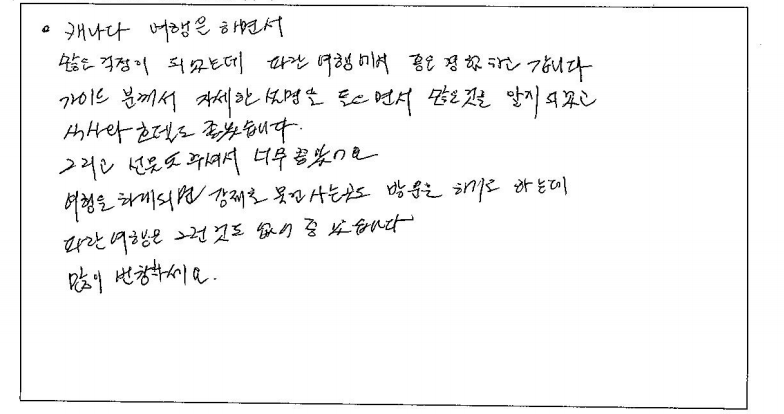 • 캐나다 여행을 하면서
많은 걱정이 되었는데 파란 여행에서 좋은 경험하고 갑니다
가이드 분께서 자세한 설명을 들으면서 많은것을 알게 되었고
식사와 호텔도 좋았습니다.
그리고 선물도 주셔서 너무 좋았어요
여행을 하게되면 강제로 물건 사는곳도 방문을 하기도 하는데
파란 여행은 그런 것도 없어 좋았습니다
많이 번창하세요.